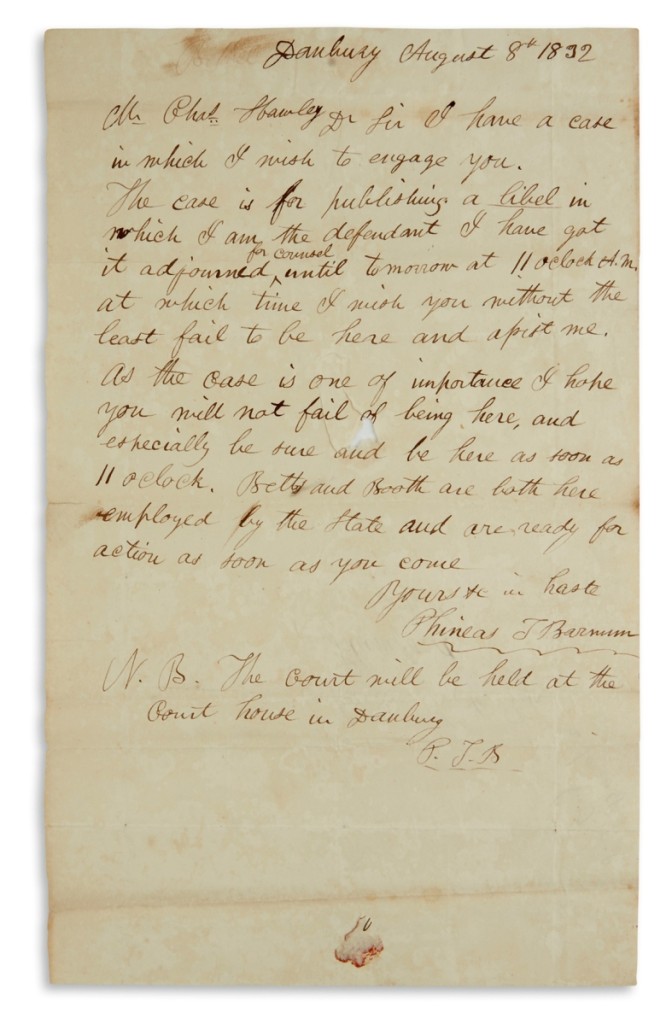 Danbury August 8th 1832
Mr Chas. Hawley Dr Sir I have a case
in which I wish to engage you.
The case is for publishing a libel in
which I am the defendant I have got
it adjourned for counsel until tomorrow at 11 oclock A.M.
at which time I wish you without the
least fail to be here and assist me.
As the case is one of importance I hope
you will not fail of being here, and
especially be sure and be here as soon as
11 oclock. Betts and Booth are both here
employed by the State and are ready for
action as soon as you come
Yours &c in haste
Phineas T Barnum
N. B. The court will be held at the
Court house in Danbury
P. T. B